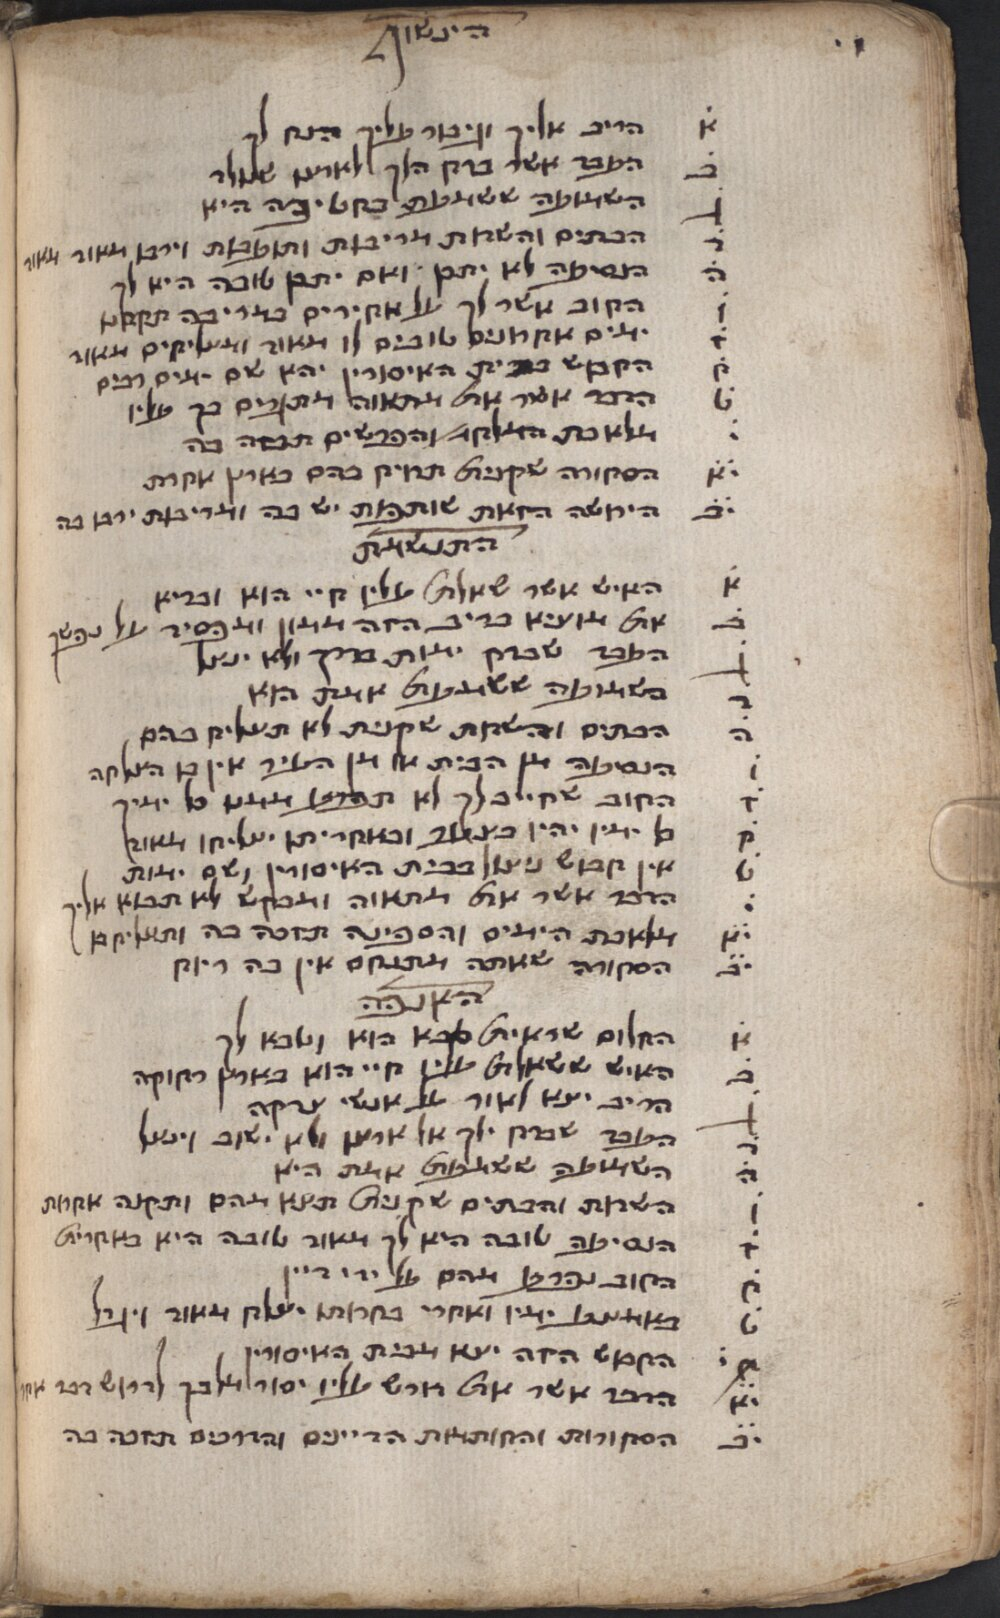 הינשוף
א הריב אליך ויגבור עליך הנח לך
ב העבד אשר ברח הלך לארצו שולל
ג השמועה ששמעת בקטיבה היא
ד הבתים והשדות מריבות ותוטבות וירבו מאוד מאוד
ה הנסיעה לא יתכן ואם יתכן טובה היא לך
ו החוב אשר לך על אחירים במריבה תקחנו
ז ימים אחרונים טובים לו מאוד ומצליחים מאוד
ח החבוש בבית האיסורין יהא שם ימים רבים
ט הדבר אשר אתה מתאוה מתגרים בך עליו
י מלאכת והכבשים תזכה בה
יא הסחורה שקנית תרויח בהם בארץ אחרת
יב הירושה הזאת שותפות יש בה ומריבות ירבו בה
התנשמת
א האיש אשר שאלת עליו חיי הוא ובריא
ב אתה מוציא בריב הזה ממון ומפסיד על נפשך
ג העבד שברח ימות בדרך ולא ינצל
ד השמועה ששמעת אמת הוא
ה הבתים והשדות שקנית לא תצליח בהם
ו הנסיעה מן הבית או מן העיר אין בו הצלחה
ז החוב שחייב לך לא תפרע ממנו כל ימיך
ח כל ימיו יהיו בצער ובאחריתו יצליחו מאוד
ט אין חבוש ניצול בבית האיסורין ושם ימות
י הדבר אשר אתה מתאוה ומבקש לא תבוא אליך
יא מלאכת הימים והספינה תזכה בה ותצליח
יב הסחורה שאתה מתעסק אין בה ריוח
האנפה
א החלום שראית טבא הוא וטבא לך
ב האיש ששאלת עליו חיי הוא בארץ רחוקה
ג הריב יצא לאור על אנשי צדקה
ד העבד שברח ילך אל ארצו ולא ישוב וינצל
ה השמועה ששמעת אמת היא
ו השדות והבתים שקנית תצא מהם ותקנה אחרות
ז הנסיעה טובה היא לך מאוד טובה היא באחרית
ח החוב נפרע מהם על ידי דיין
ט באמצע ימיו ואחרי בחרותו יצלח מאוד ויגדל
י החבוש הזה יצא מבית האיסורין
יא הדבר אשר אתה דורש עליו יסור מלבך לדרוש דבר אחר
יב הסחורות והחותמות הדיינים תזכה בה